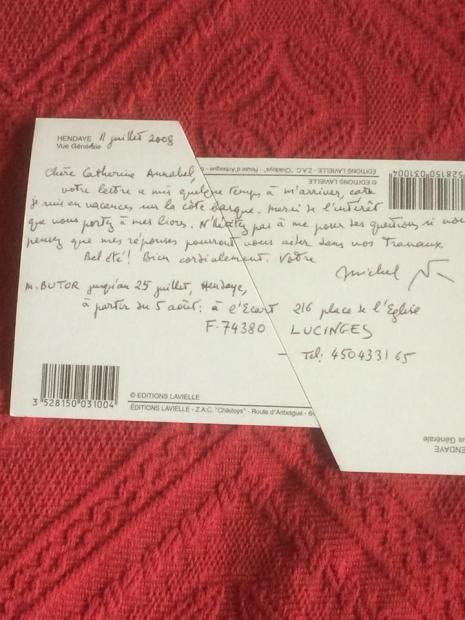 HENDAYE 11 juillet 2008
Vue Générale
Chère Catherine Annabel,
votre lettre a mis quelque temps à m'arriver, car
je suis en vacances sur la côte basque. Merci de l'intérêt
que vous portez à mes livres. N'hésitez pas à me poser des questions si vous
pensez que mes réponses pourront vous aider dans vos travaux
Bel été! Bien cordialement. Votre
Michel
M. BUTOR jusqu'au 25 juillet, Hendaye,
à partir du 5 août: à l'Ecart 216 place de l'Eglise
F-74380 LUCINGES
- Tel: 450433165
© EDITIONS LAVIELLE
EDITIONS LAVIELLE - Z.A.C. "Chikitoys" - Route d'Artxague - 6
3 528150 031004
EDITIONS LAVIELLE - Z.A.C. "Chikitoys" - Route d'Artxague - 6
© EDITIONS LAVIELLE
528150 031004
ENDAYE
ue Générale